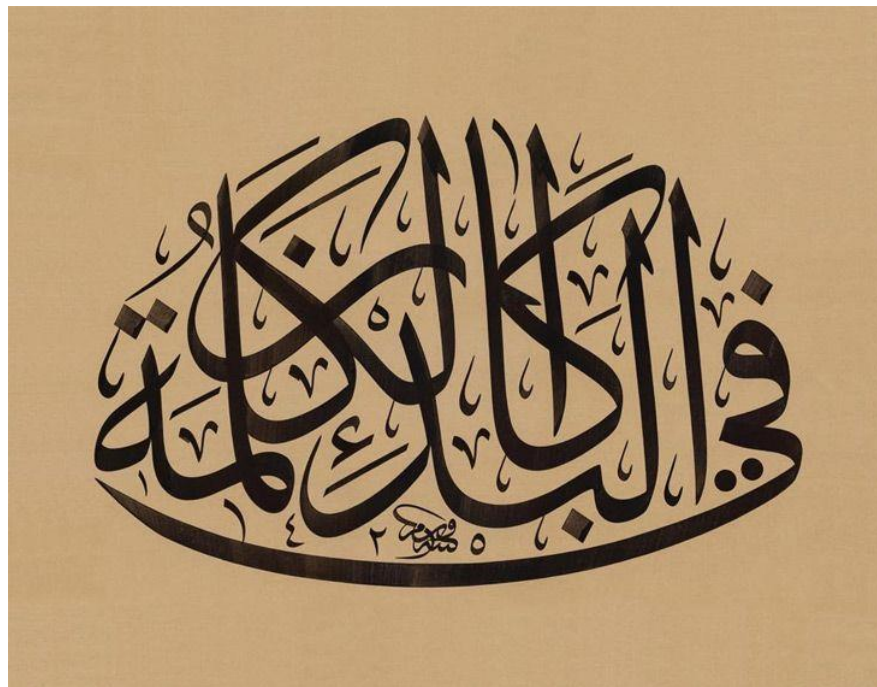 في البدء كان الكلمة
١٤٢٥